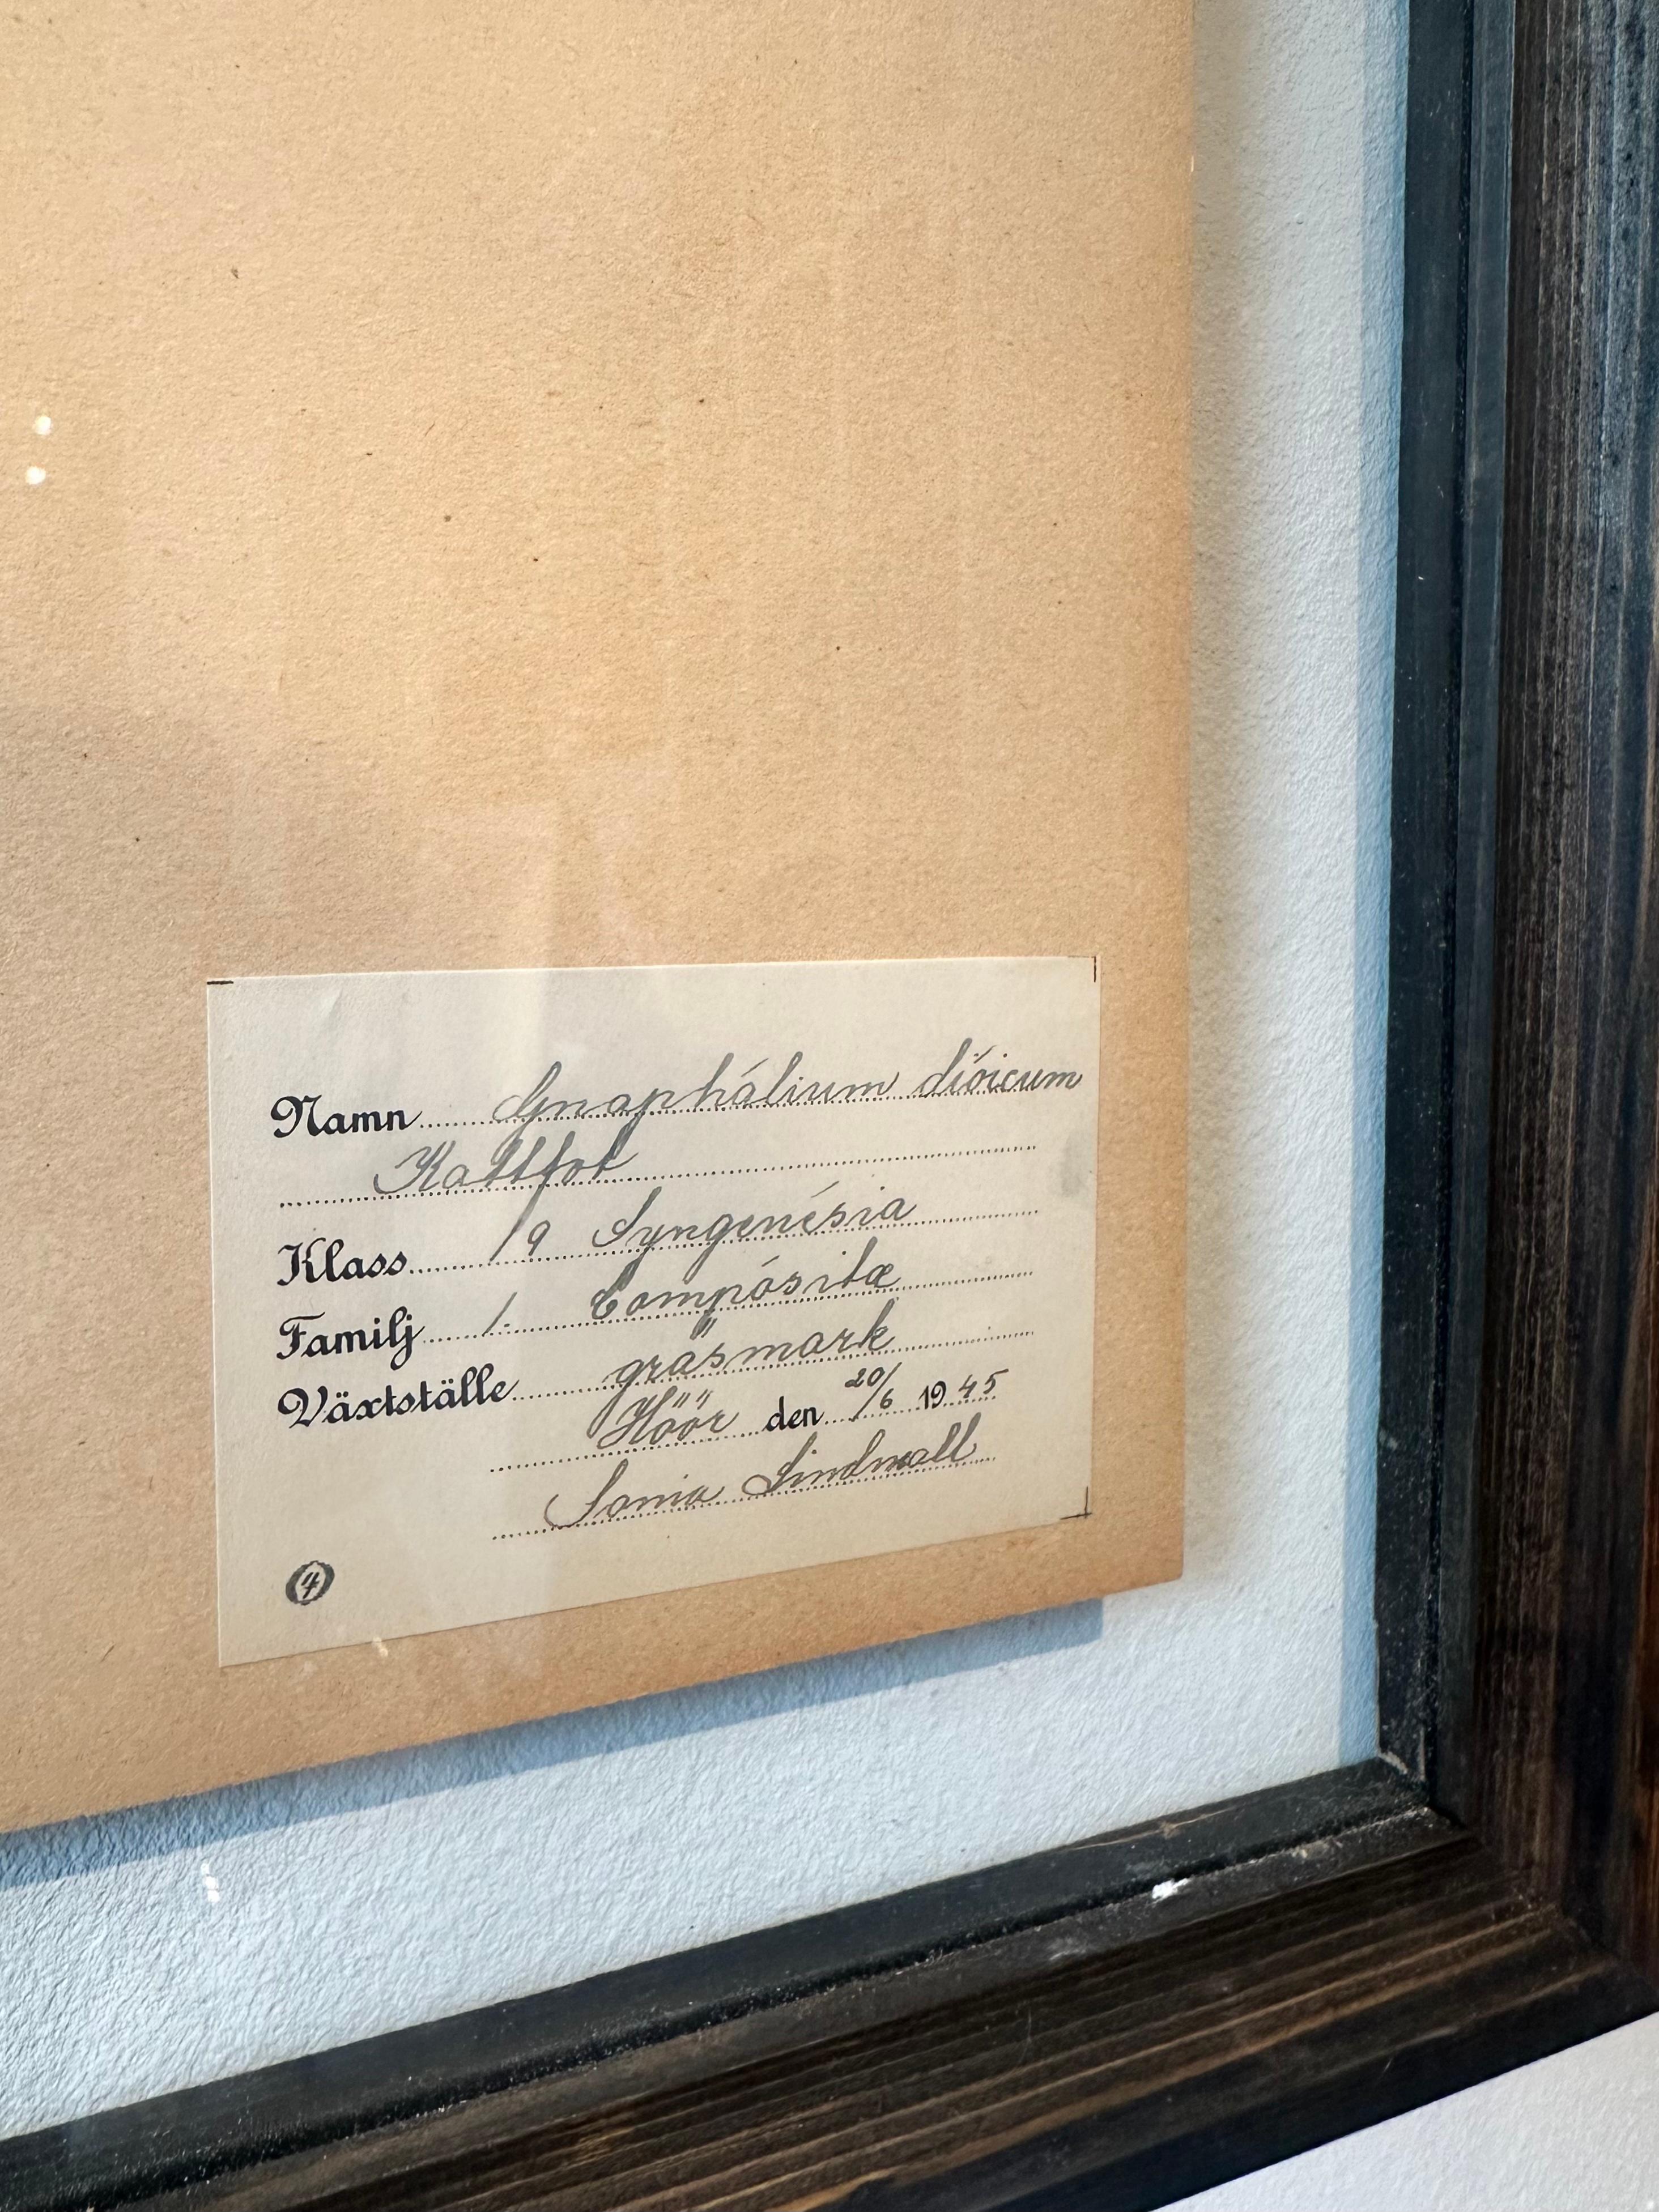 Namn Gnaphálium dióicum
Kattfot
Klass 19 Syngenésia
Familj 1. Compósitæ
Växtställe gräsmark
Höör den 20/6 1945
Sonia Lindwall
4